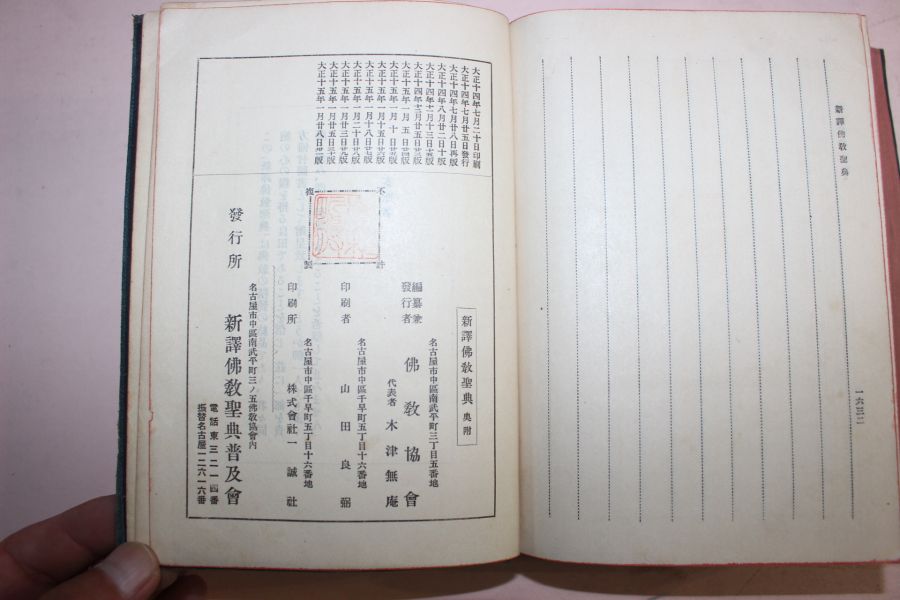 新譯佛敎聖典
一六三二
大正十四年七月二十日印刷
大正十四年七月廿五日發行
大正十四年七月廿八日再版
大正十四年八月廿二日十版
大正十四年十二月十三日十五版
大正十五年一月五日
大正十五年一月十日
大正十五年一月十五日
大正十五年一月十八日
大正十五年一月二十日
大正十五年一月廿三日
大正十五年一月廿五日
大正十五年一月廿八日
不許
複製
新譯佛敎聖典 奧附
名古屋市中區南武平町三丁目五番地
編纂兼發行者 佛敎協會
代表者 木津無庵
名古屋市中區千早町五丁目十六番地
印刷者 山田良弼
名古屋市中區千早町五丁目十六番地
印刷所 株式會社一誠社
名古屋市中區南武平町三ノ五佛敎協會內
發行所 新譯佛敎聖典普及會
電話東三二一四番
振替名古屋一二六一六番